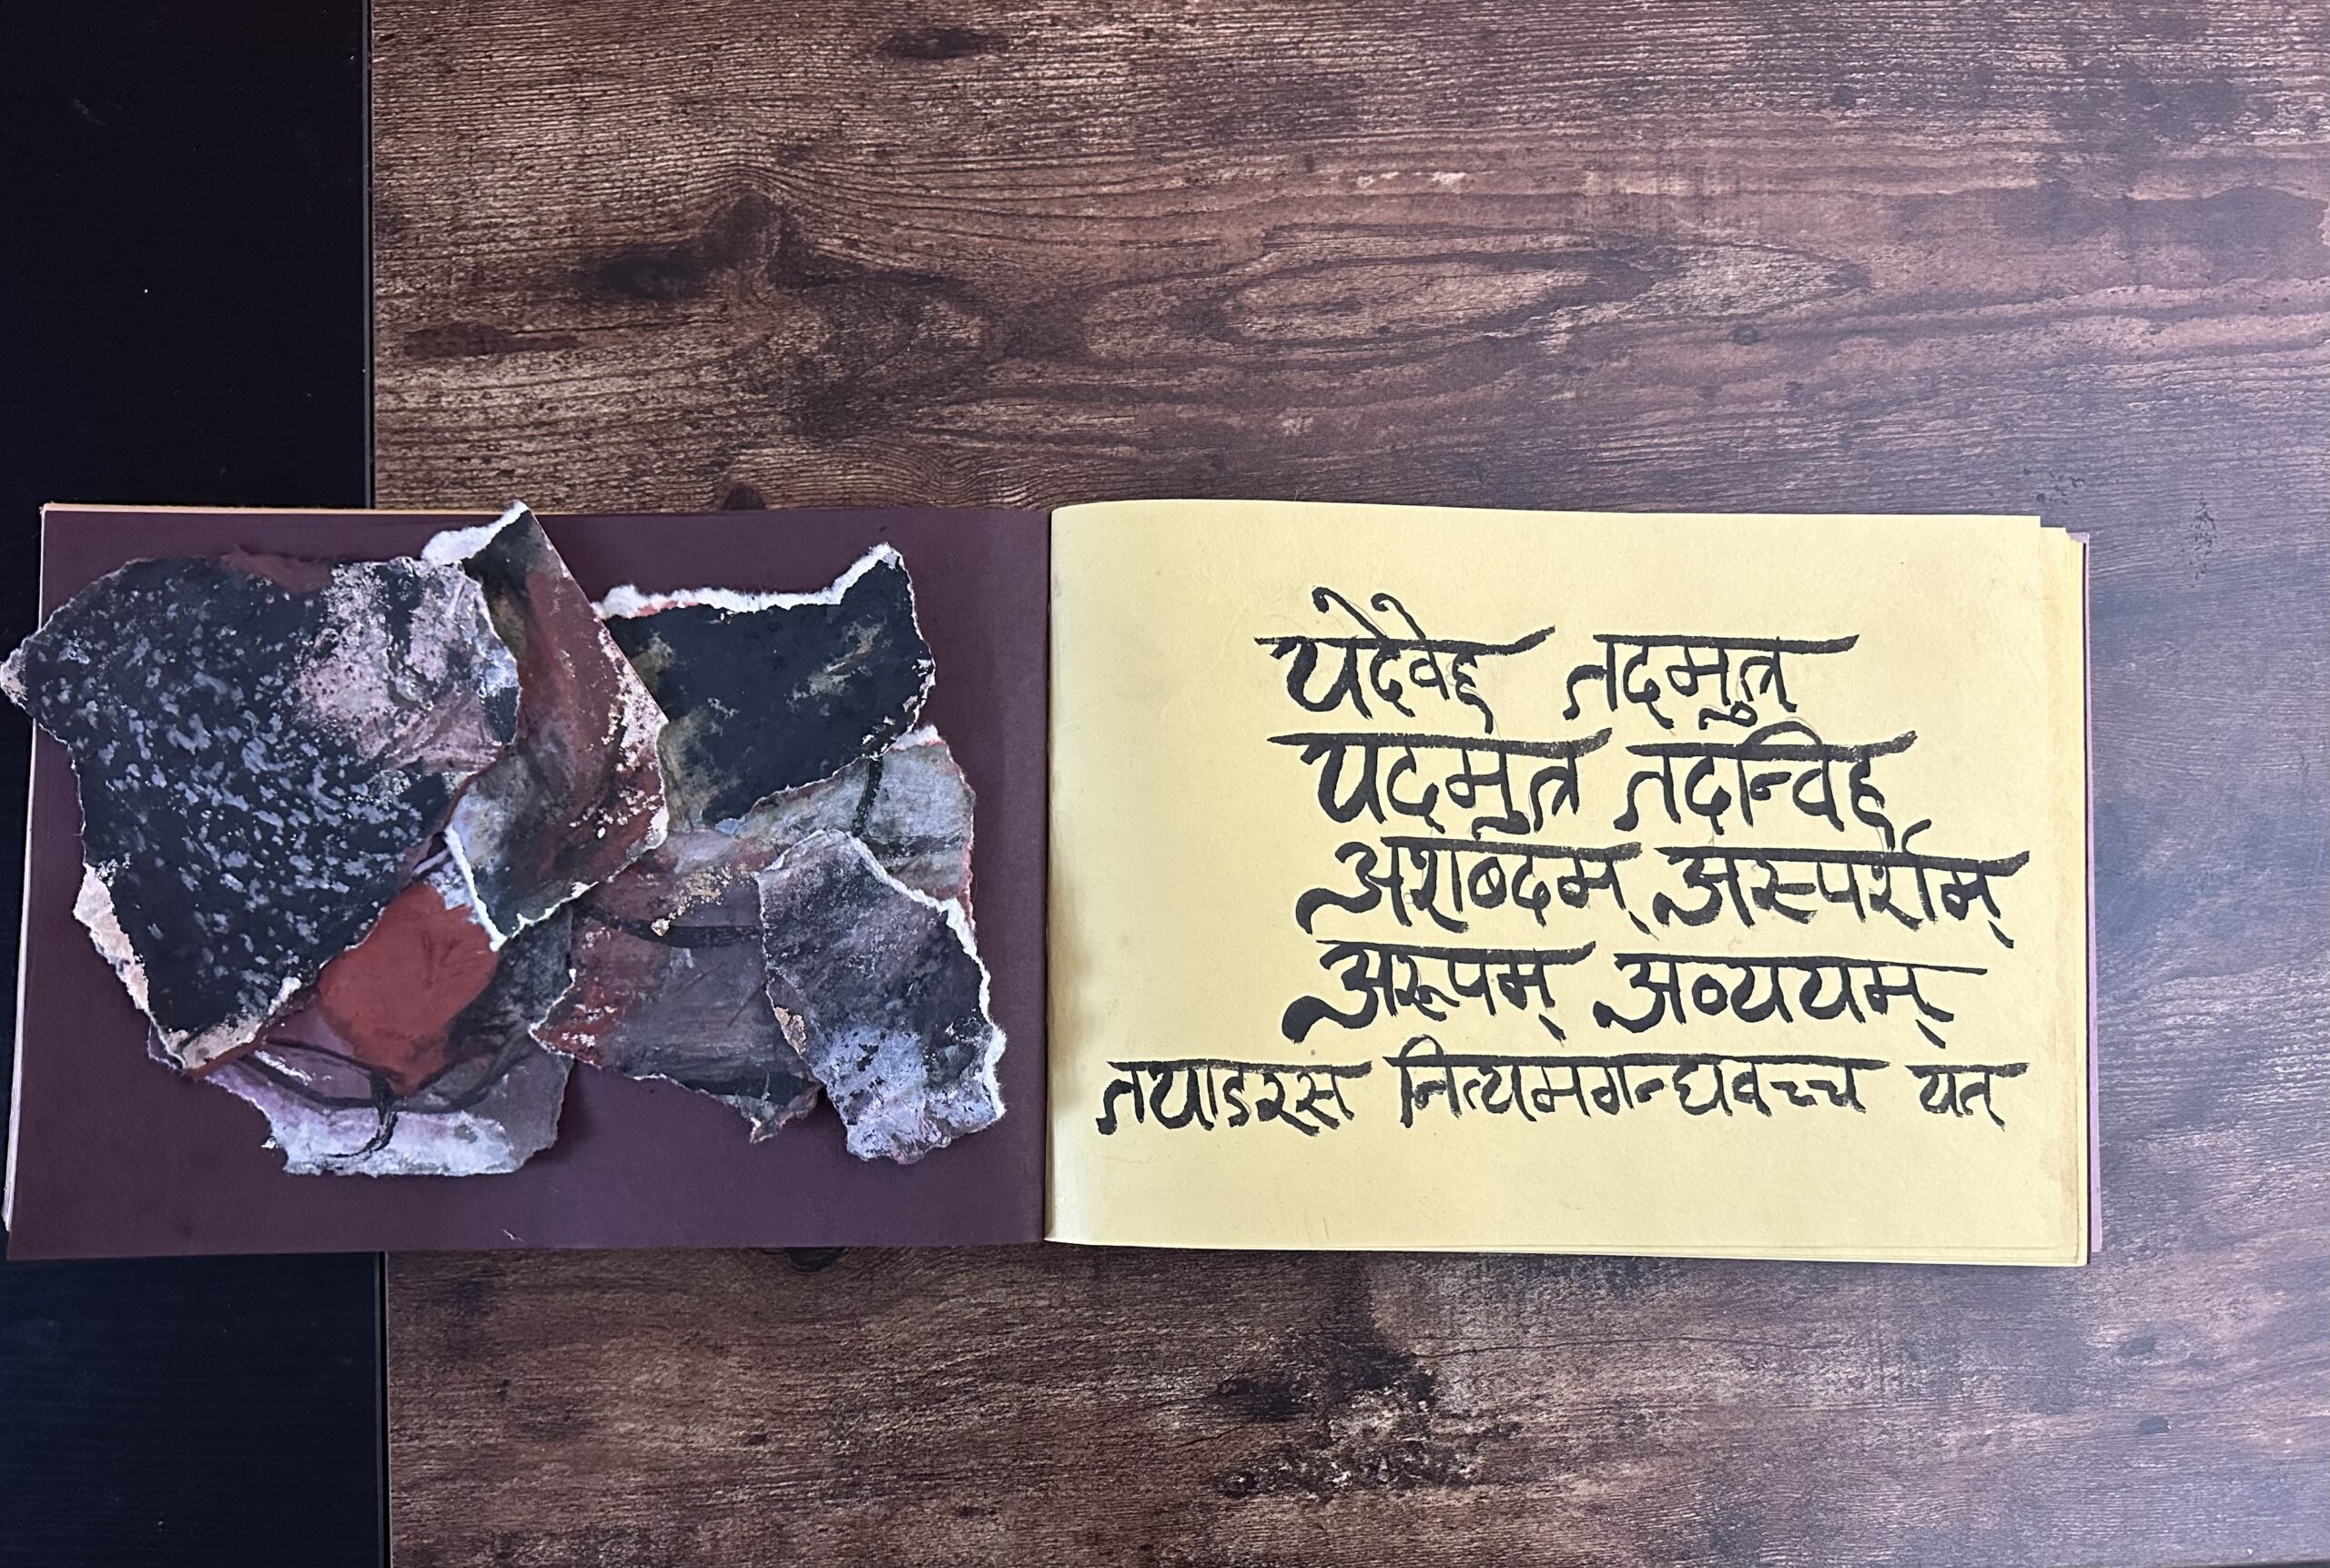 यदेवेह तदमुत्र
यदमुत्र तदन्विह
अशब्दम् अस्पर्शम्
अरूपम् अव्ययम्
तथाऽरसं नित्यमगन्धवच्च यत